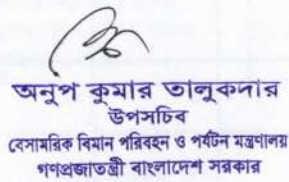 অনুপ কুমার তালুকদার
উপসচিব
বেসামরিক বিমান পরিবহন ও পর্যটন মন্ত্রণালয়
গণপ্রজাতন্ত্রী বাংলাদেশ সরকার